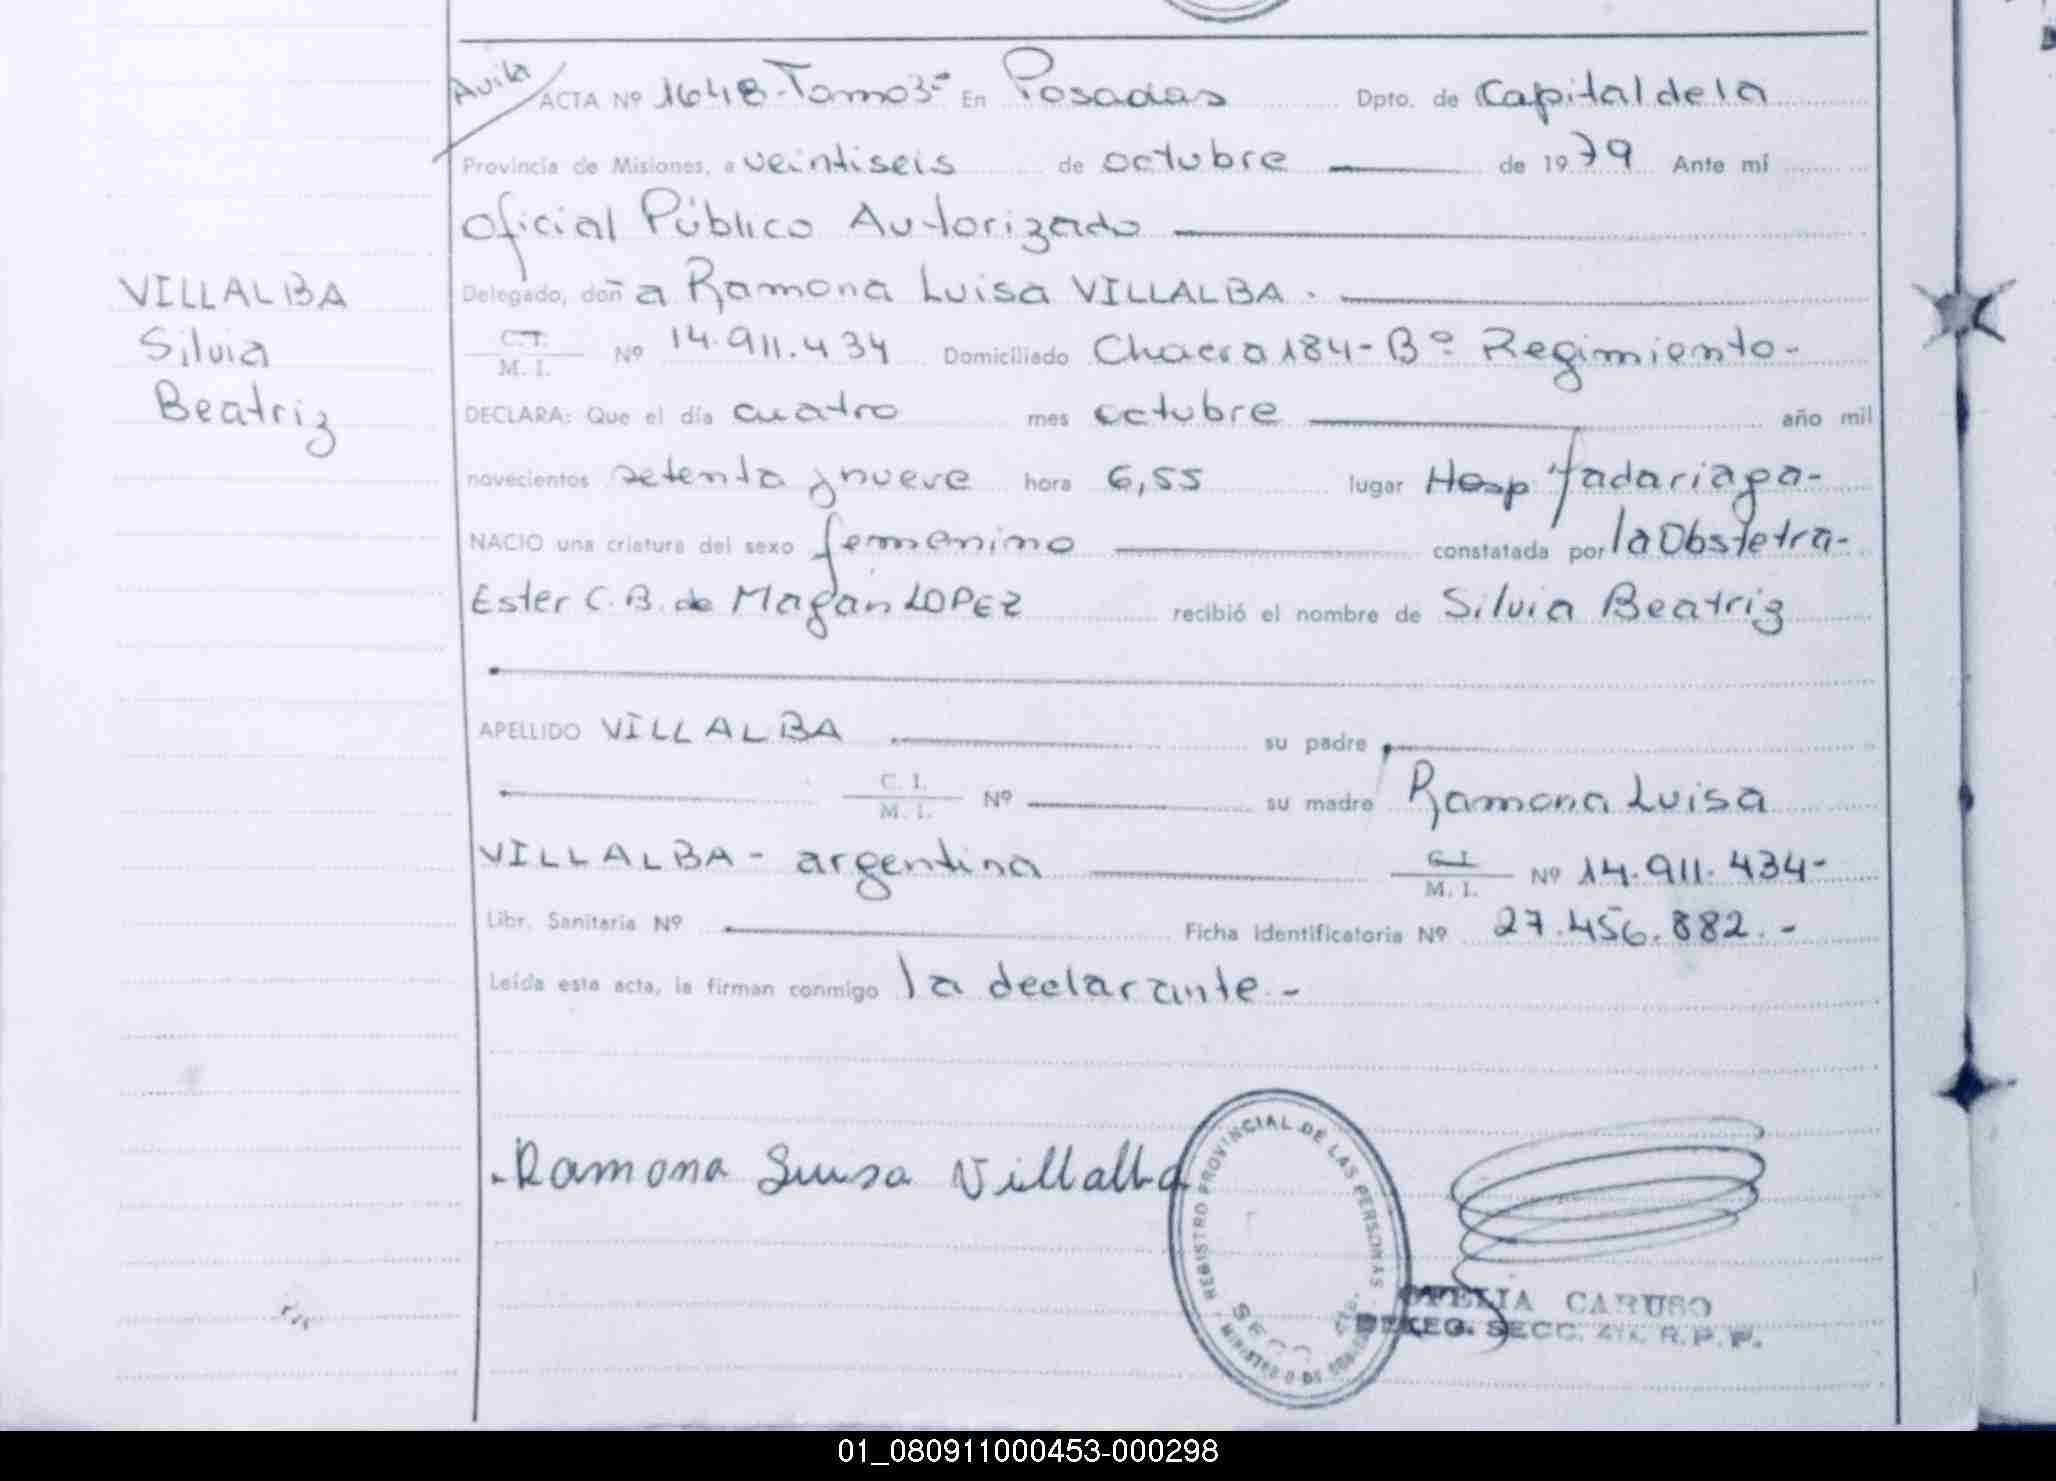 Avila
ACTA Nº 1648-Tomo3º En Posadas Dpto. de Capital de la
Provincia de Misiones, a veintiseis de octubre de 1979 Ante mí
Oficial Público Autorizado
VILLALBA
Silvia
Beatriz
Delegado, doña Ramona Luisa VILLALBA.
C.I.
M. I. Nº 14.911.434 Domiciliado Chacra 184-Bº Regimiento-
DECLARA: Que el día cuatro mes octubre año mil
novecientos setenta y nueve hora 6,55 lugar Hosp Madariaga-
NACIO una criatura del sexo femenino constatada por la Obstetra-
Ester C. B. de Magan LOPEZ recibió el nombre de Silvia Beatriz
APELLIDO VILLALBA su padre
C. I.
M. I. Nº su madre Ramona Luisa
VILLALBA - argentina C.I.
M. I. Nº 14.911.434-
Libr. Sanitaria Nº Ficha identificatoria Nº 27.456.882.-
Leída esta acta, la firman conmigo la declarante.-
Ramona Luisa Villalba
REGISTRO PROVINCIAL DE LAS PERSONAS
SECC
OFELIA CARUSO
DELEG. SECC. 4ta. R. P. P.
01_080911000453-000298